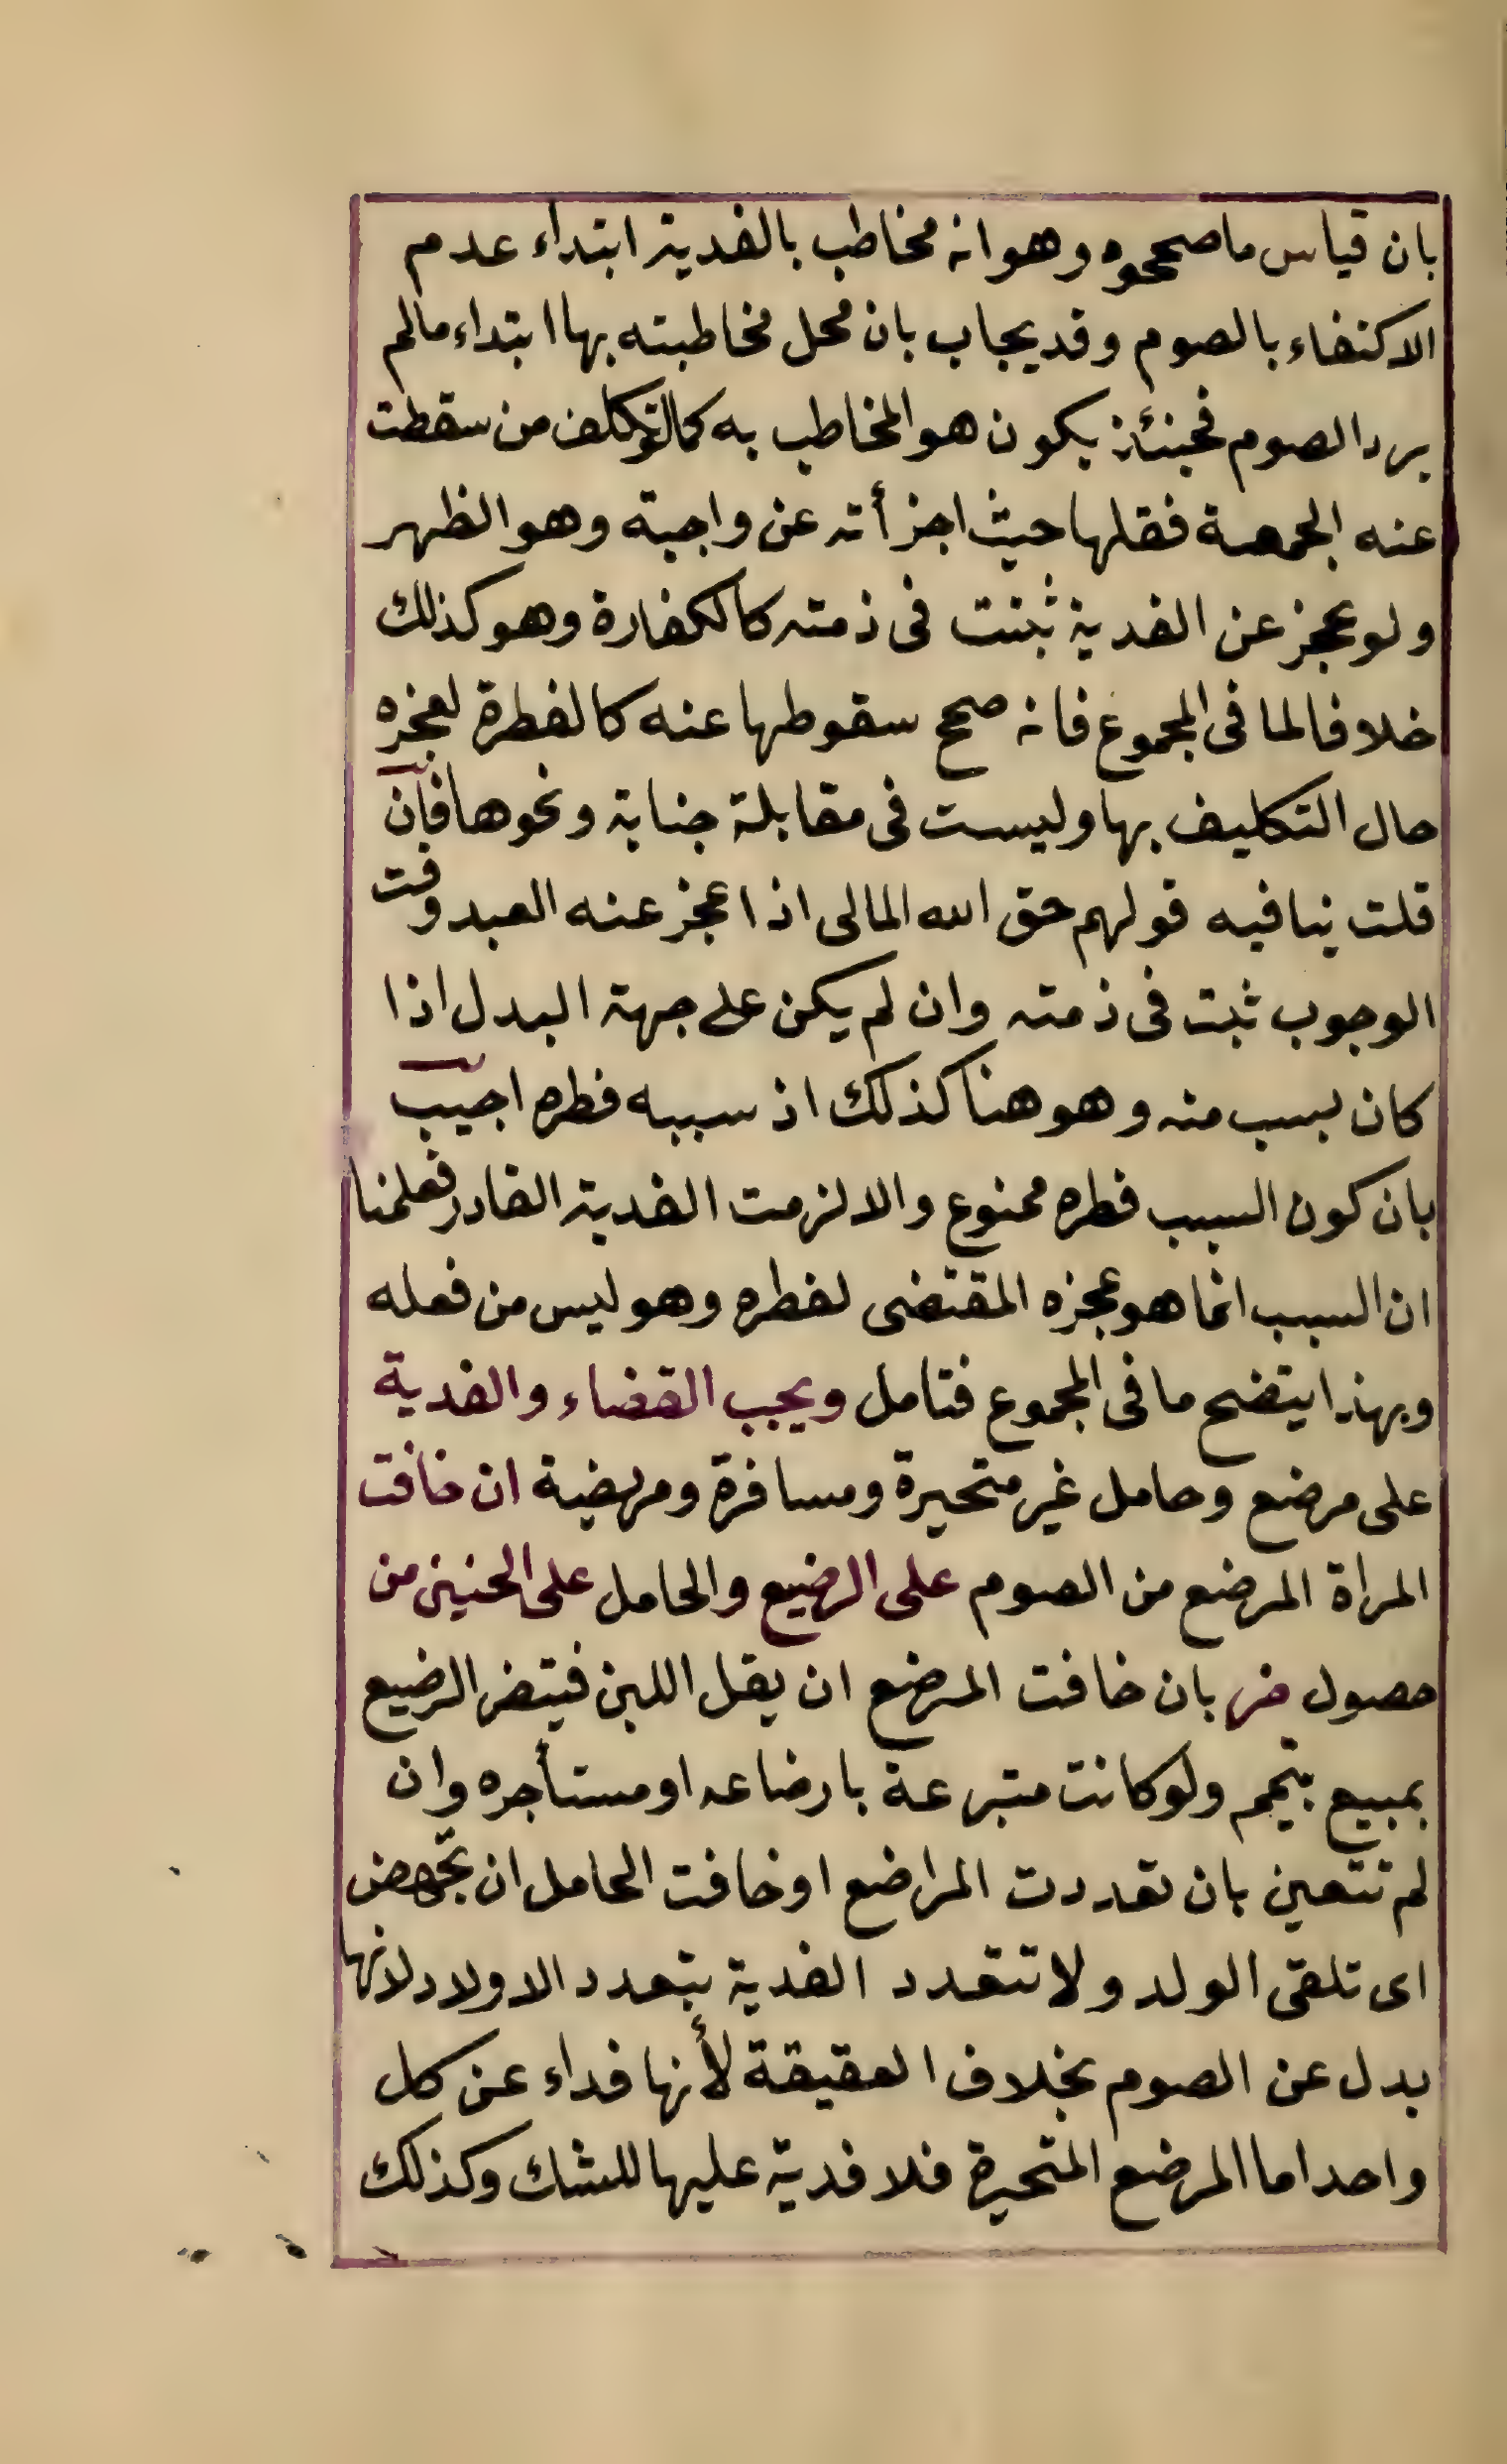 بان قياس ما صححوه وهو انه مخاطب بالفدية ابتداء عدم
الاكتفاء بالصوم وقد يجاب بان محل مخاطبته بها ابتداء مالم
يرد الصوم فحينئذ يكون هو المخاطب به كما لو تكلف من سقطت
عنه الجمعة فقلها حيث اجزأته عن واجبة وهو الظهر
ولو عجز عن الفدية ثبتت فى ذمته كالكفارة وهو كذلك
خلافا لما فى المجموع فانه صحح سقوطها عنه كالفطرة لعجزه
حال التكليف بها وليست فى مقابلة جناية ونحوها فان
قلت ينافيه قولهم حق الله المالى اذا عجز عنه العبد وقت
الوجوب ثبت فى ذمته وان لم يكن على جهة البدل اذا
كان بسبب منه وهو هنا كذلك اذ سببه فطره اجيب
بان كون السبب فطره ممنوع والا لزمت الفدية القادر فعلمنا
ان السبب انما هو عجزه المقتضى لفطره وهو ليس من فعله
وبهذا يتضح ما فى المجموع فتامل ويجب القضاء والفدية
على مرضع وحامل غير متحيرة ومسافرة ومريضة ان خافت
المراة المرضع من الصوم على الرضيع والحامل على الجنين من
حصول ضر بان خافت المرضع ان يقل اللبن فيتضر الرضيع
بمبيح تيمم ولو كانت متبرعة بارضاعه او مستأجره وان
لم تتعين بان تعددت المراضع او خافت الحامل ان تجهض
اى تلقى الولد ولا تتعدد الفدية بتعدد الاولاد لانها
بدل عن الصوم بخلاف العقيقة لأنها فداء عن كل
واحد اما المرضع المتحيرة فلا فدية عليها للشك وكذلك